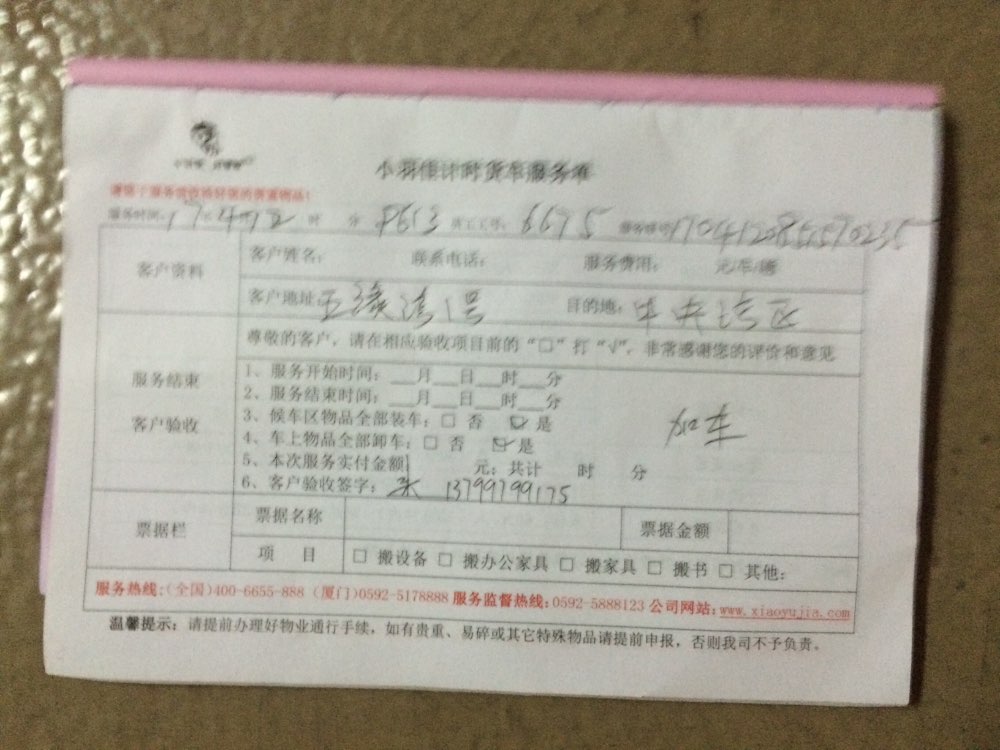 小羽佳计时货车服务单
服务时间: 17年4月12 时 分 8613 员工工号: 6675
客户资料 客户姓名: 联系电话: 服务费用: 元/车/趟
客户地址: 五缘湾1号 目的地: 中央湾区
尊敬的客户，请在相应验收项目前的“□”打“√”，非常感谢您的评价和意见
服务结束
客户验收
1、服务开始时间: ___月___日___时___分
2、服务结束时间: ___月___日___时___分
3、候车区物品全部装车: □ 否 ☑ 是
4、车上物品全部卸车: □ 否 ☑ 是
加车
5、本次服务实付金额 元; 共计 时 分
6、客户验收签字: 13799799175
票据栏 票据名称 票据金额
项 目 □ 搬设备 □ 搬办公家具 □ 搬家具 □ 搬书 □ 其他:
服务热线:(全国)400-6655-888 (厦门)0592-5178888 服务监督热线:0592-5888123 公司网站:www.xiaoyujia.com
温馨提示: 请提前办理好物业通行手续，如有贵重、易碎或其它特殊物品请提前申报，否则我司不予负责。